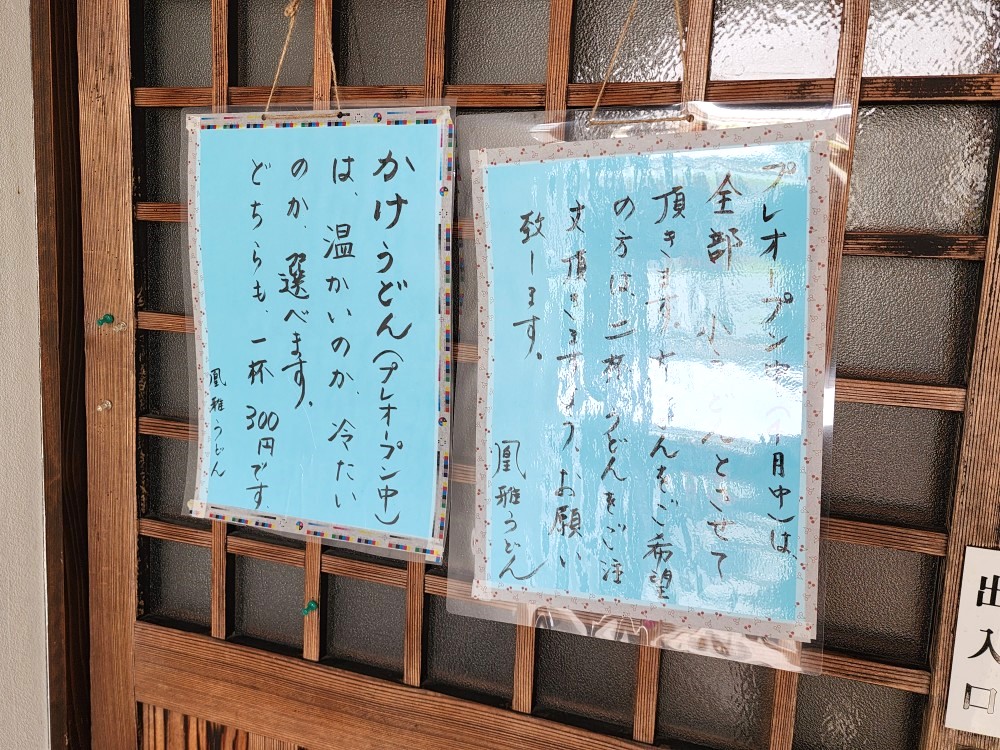 プレオープン中(月中)は、
全部 小うどんとさせて
頂きます。大うどんをご希望
の方は、二杯うどんをご注
文頂きますよう、お願い
致します。
凰雅うどん
かけうどん(プレオープン中)
は、温かいのか、冷たい
のか、選べます。
どちらも、一杯 300円です
凰雅うどん
出入口